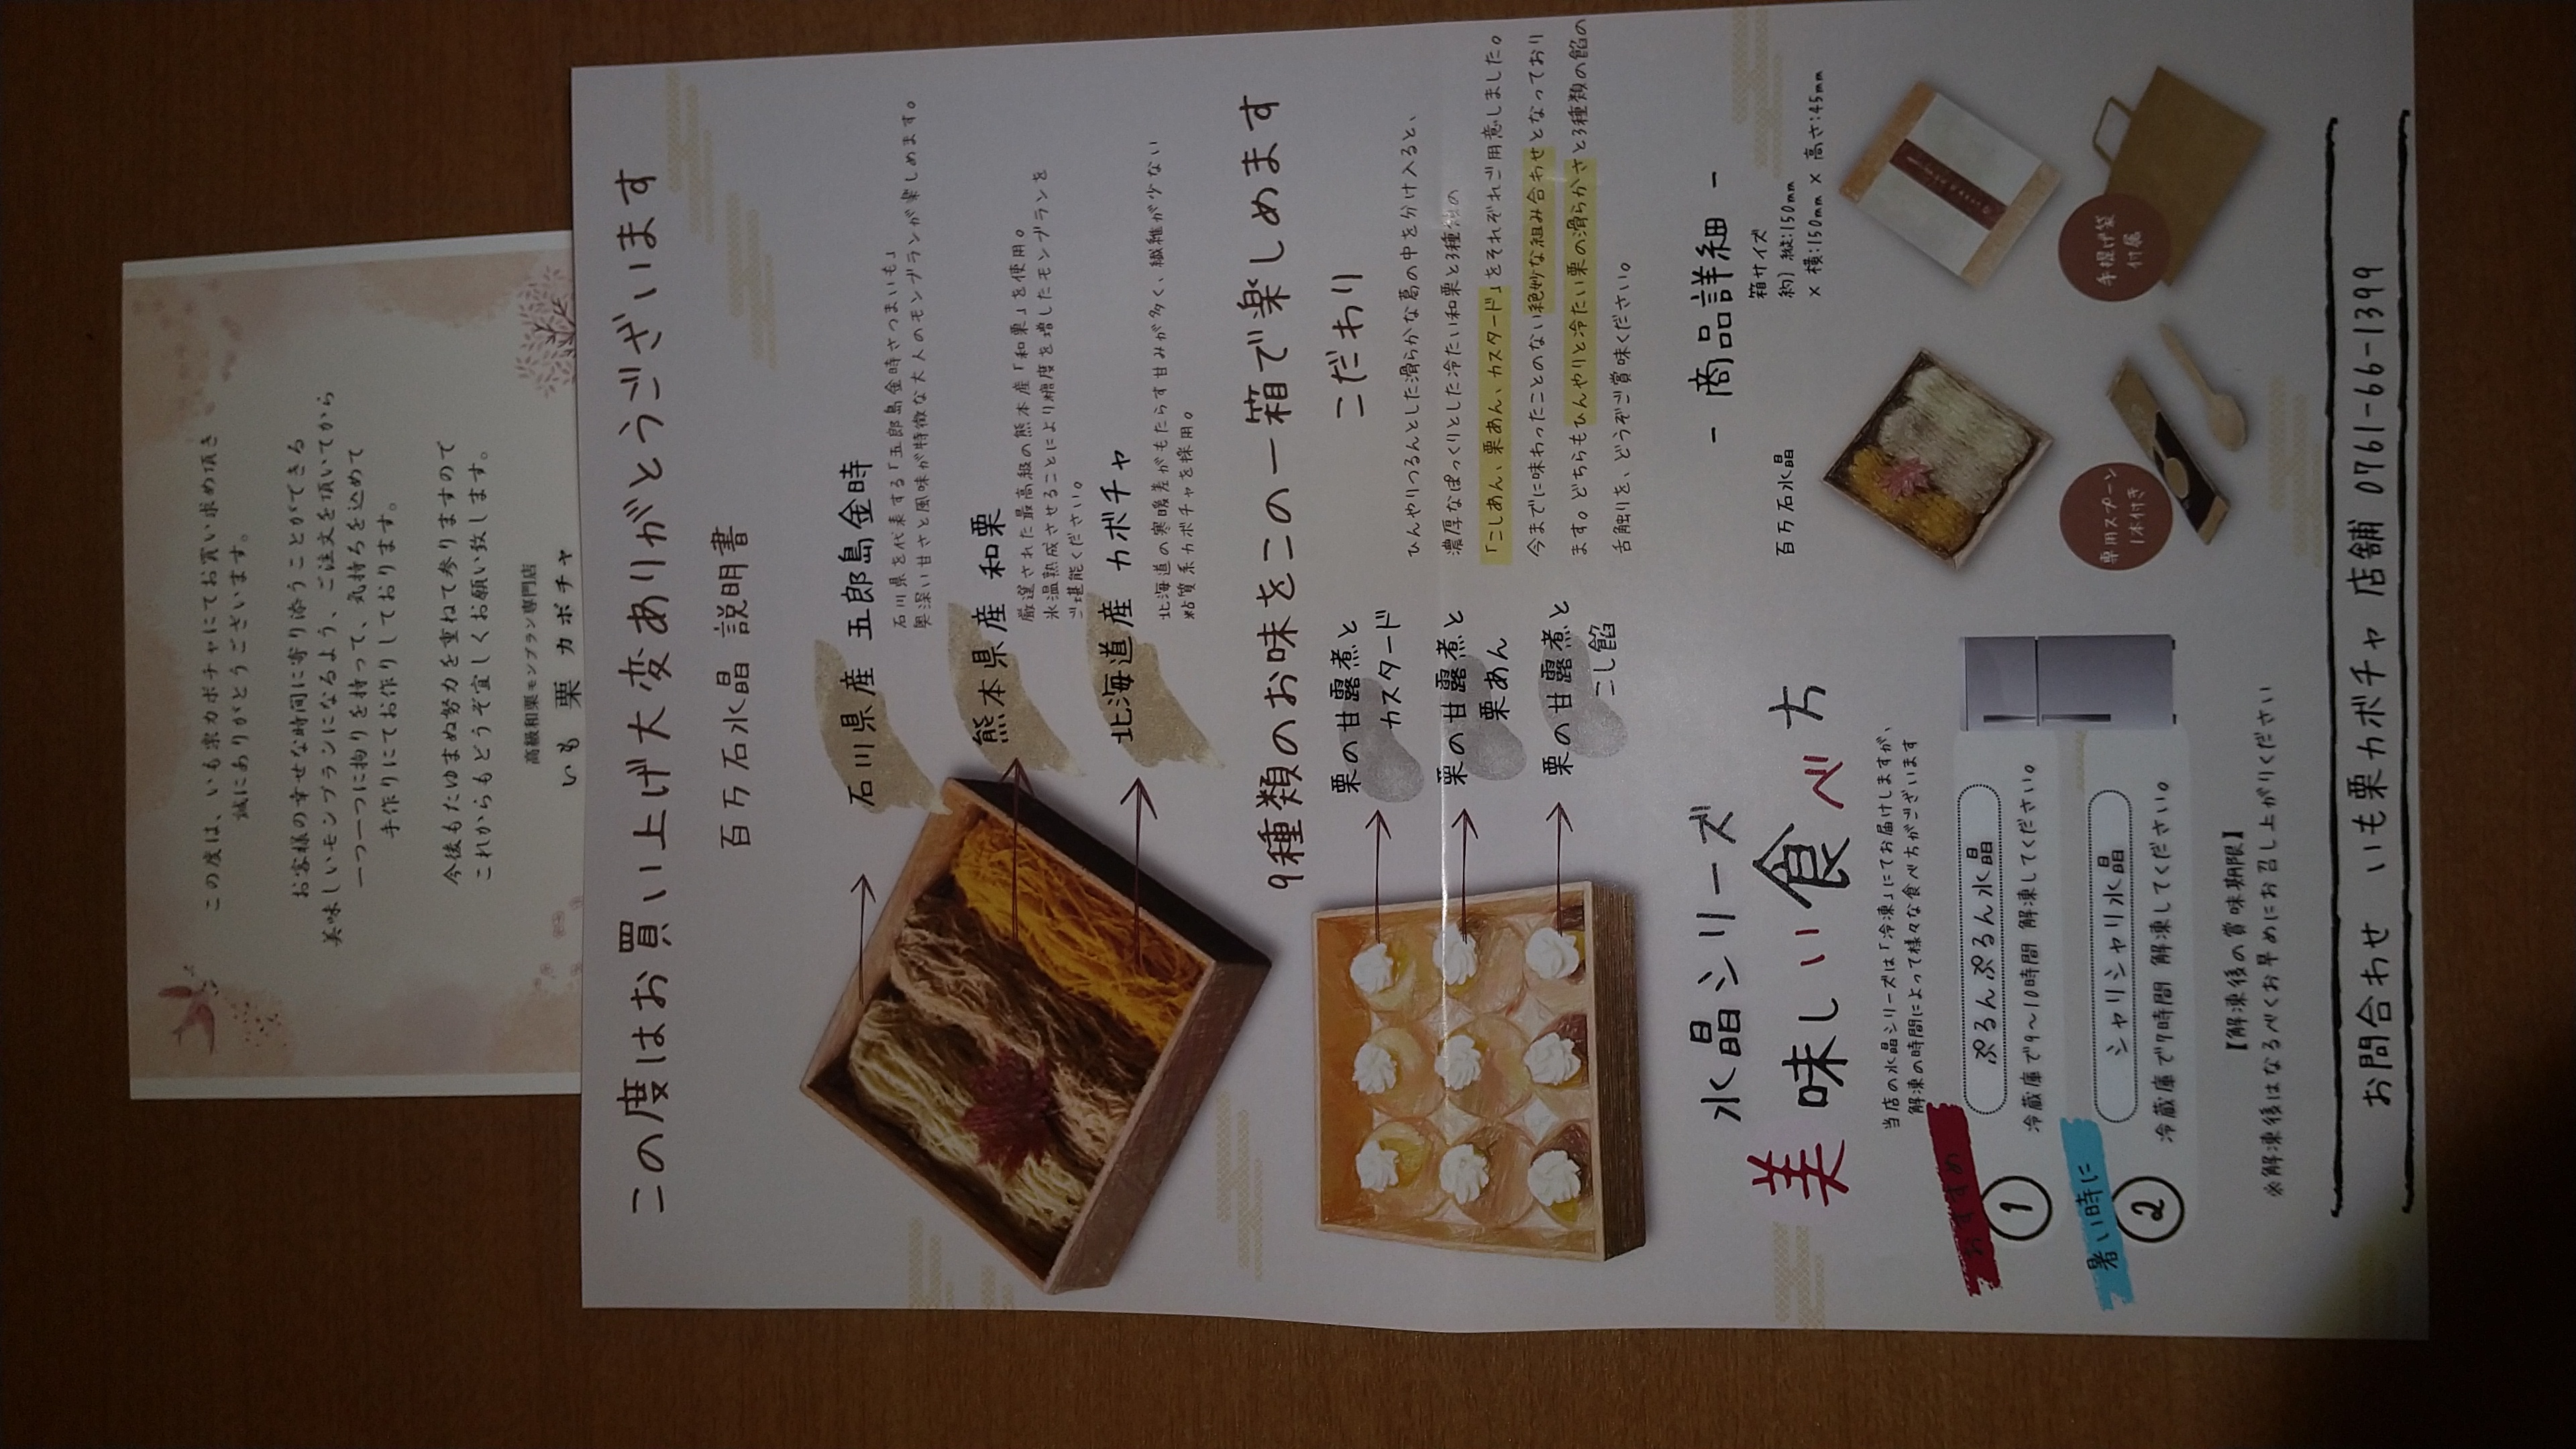 この度は、いも栗カボチャにてお買い求め頂き
誠にありがとうございます。
お客様の幸せな時間に寄り添うことができる
美味しいモンブランになるよう、ご注文を頂いてから
一つ一つに拘りを持って、気持ちを込めて
手作りにてお作りしております。
今後もたゆまぬ努力を重ねて参りますので
これからもどうぞ宜しくお願い致します。
高級和栗モンブラン専門店
いも 栗 カボチャ
この度はお買い上げ大変ありがとうございます
百万石水晶 説明書
石川県産 五郎島金時
石川県を代表する「五郎島金時さつまいも」
奥深い甘さと風味が特徴な大人のモンブランが楽しめます。
熊本県産 和栗
厳選された最高級の熊本産「和栗」を使用。
氷温熟成させることにより糖度を増したモンブランを
ご堪能ください。
北海道産 カボチャ
北海道の寒暖差がもたらす甘みが多く、繊維が少ない
粘質系カボチャを採用。
9種類のお味をこの一箱で楽しめます
こだわり
栗の甘露煮と
カスタード
栗の甘露煮と
栗あん
栗の甘露煮と
こし餡
ひんやりつるんとした滑らかな葛の中を分け入ると、
濃厚なぽっくりとした冷たい和栗と3種類の
「こしあん、栗あん、カスタード」をそれぞれご用意しました。
今までに味わったことのない絶妙な組み合わせとなっており
ます。どちらもひんやりと冷たい栗の滑らかさと3種類の餡の
舌触りを、どうぞご賞味ください。
水晶シリーズ
美味しい食べ方
当店の水晶シリーズは「冷凍」にてお届けしますが、
解凍の時間によって様々な食べ方がございます
おすすめ
1
ぷるんぷるん水晶
冷蔵庫で9〜10時間 解凍してください。
暑い時に
2
シャリシャリ水晶
冷蔵庫で7時間 解凍してください。
【解凍後の賞味期限】
※解凍後はなるべくお早めにお召し上がりください
- 商品詳細 -
百万石水晶
箱サイズ
約) 縦:150mm
× 横:150mm × 高さ:45mm
専用スプーン
1本付き
手提げ袋
付属
お問合わせ いも栗カボチャ 店舗 0761-66-1399